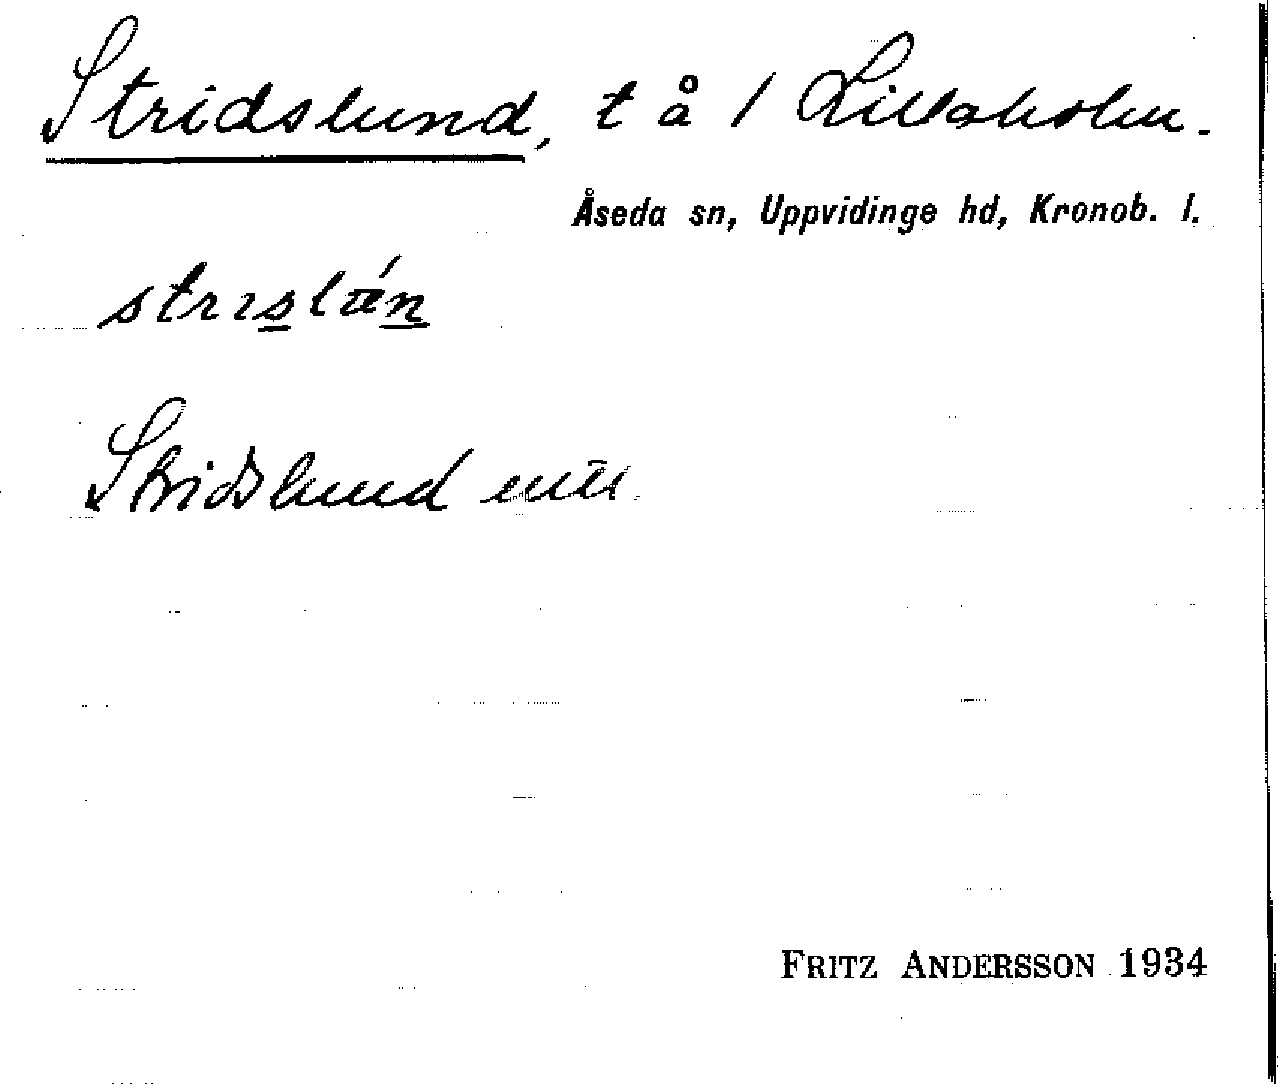 Stridslund, t å 1 Lillaholm.
Åseda sn, Uppvidinge hd, Kronob. l.
Stridslund
FRITZ ANDERSSON 1934